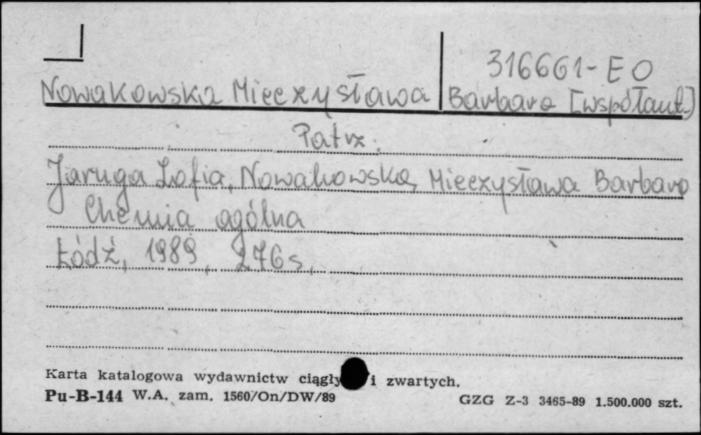 316661-EO
Nowakowska Mieczysława Barbara [współaut.]
Patrz:
Jaruga Zofia, Nowakowska, Mieczysława Barbara
Chemia ogólna
Łódź, 1989, 276 s.
Karta katalogowa wydawnictw ciągły i zwartych.
Pu-B-144 W.A. zam. 1560/On/DW/89 GZG Z-3 3465-89 1.500.000 szt.